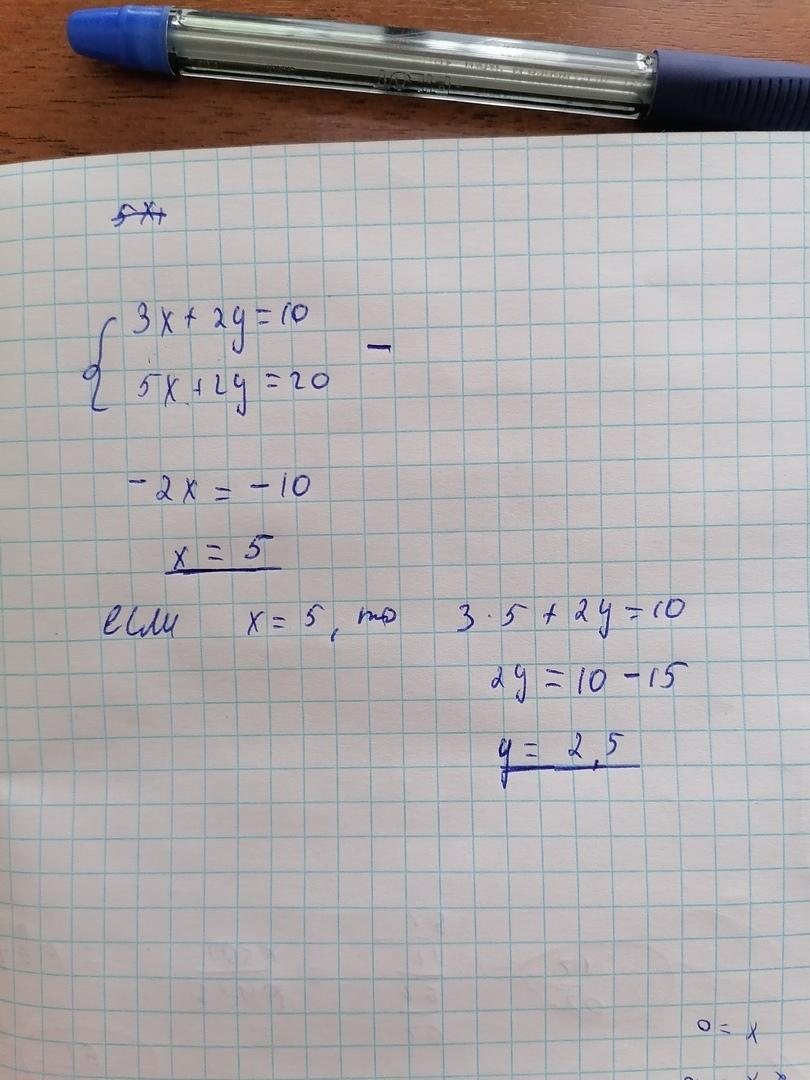 5x+
3x+2y=10
5x+2y=20
-
-2x=-10
x=5
если x=5, то 3·5+2y=10
2y=10-15
y=2,5
0=x